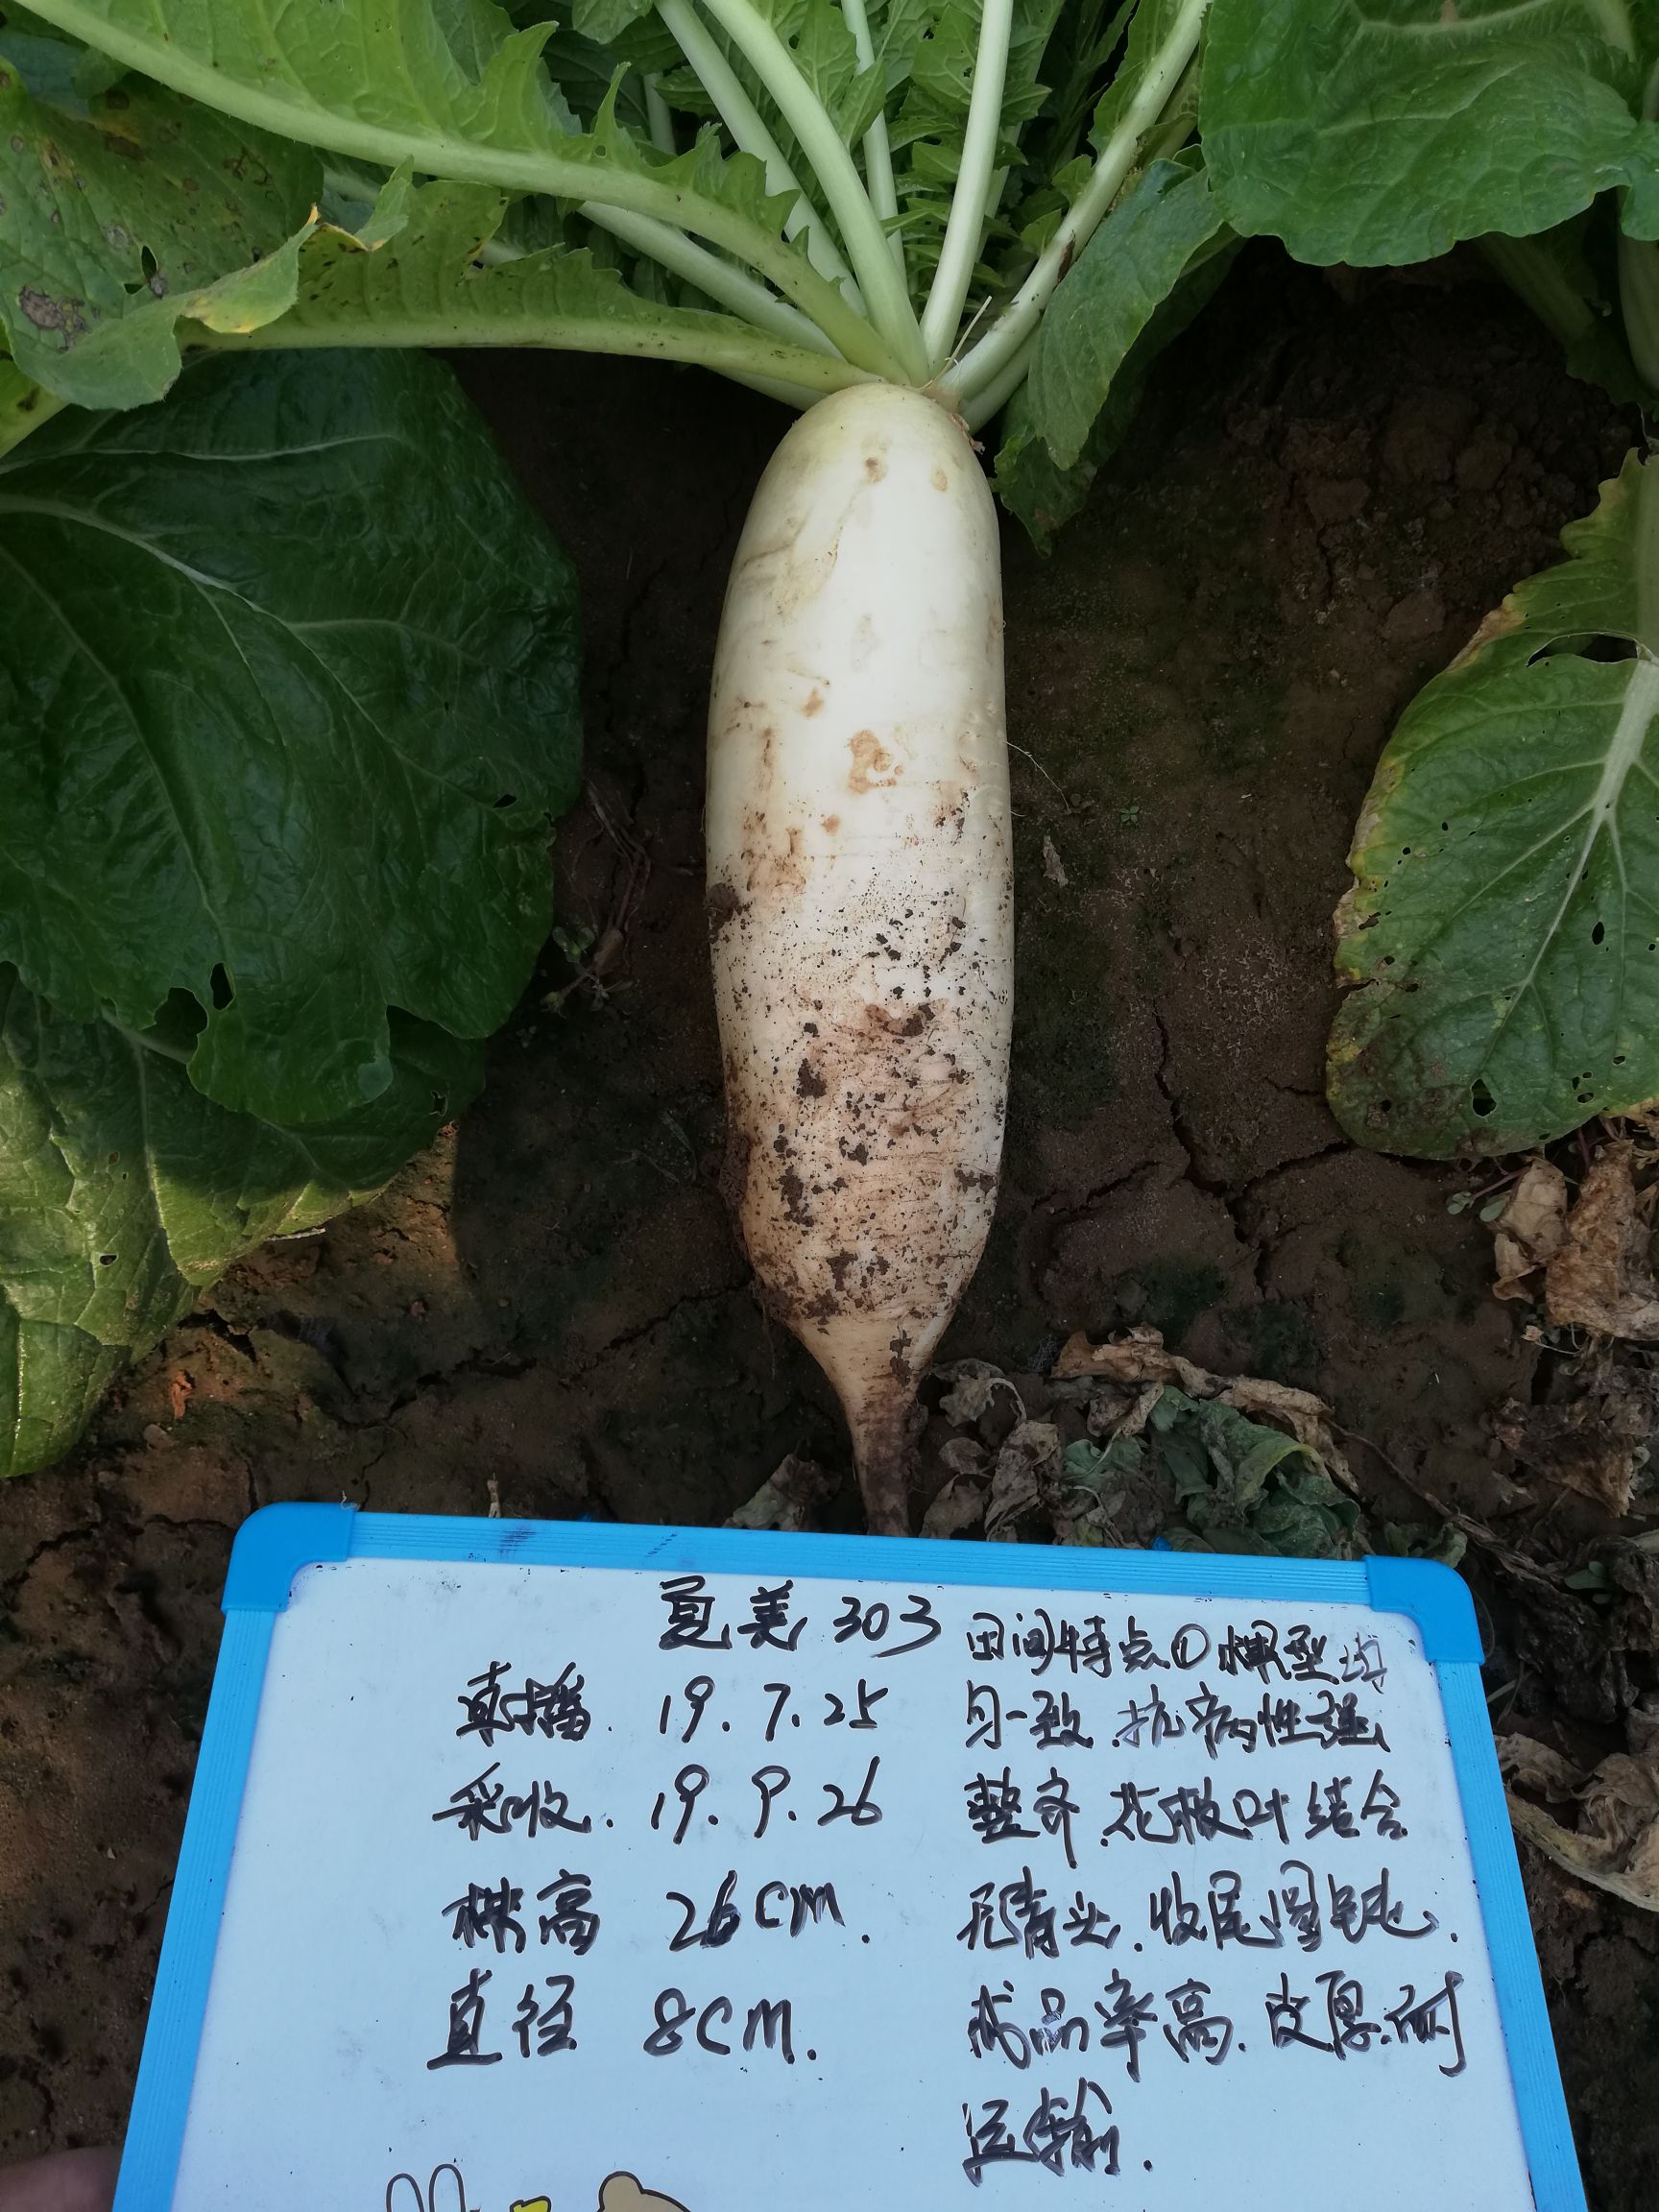 夏美 303
直播. 19.7.25
采收. 19.9.26
株高 26cm.
直径 8cm.
田间特点① 棵型均
匀一致.抗病性强
整齐.花板叶结合
无青头.收尾圆钝.
成品率高.皮厚.耐
运输.